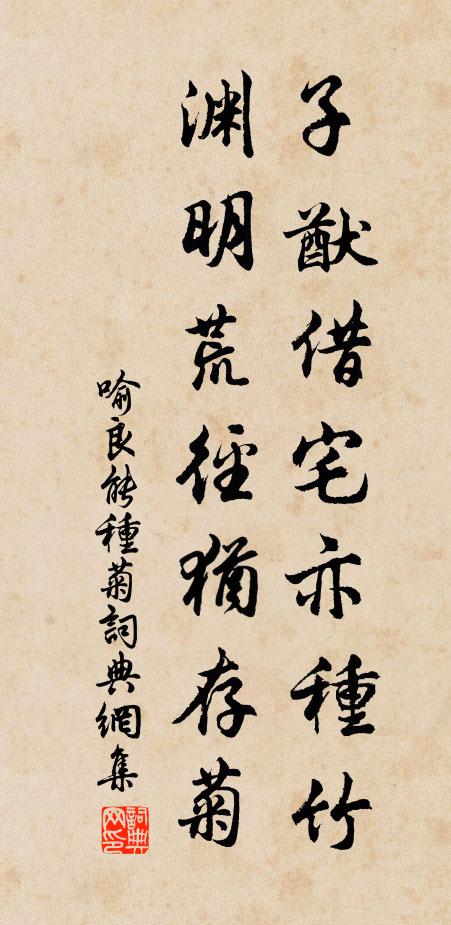 子猷借宅亦種竹
渊明荒徑猶存菊
喻良能種菊詞典網集
詞典网印